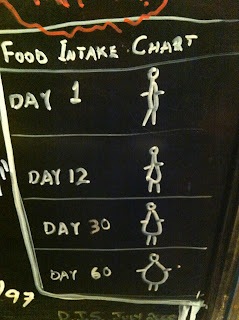 FOOD INTAKE CHART
DAY 1
DAY 12
DAY 30
DAY 60
97
D.J.S.